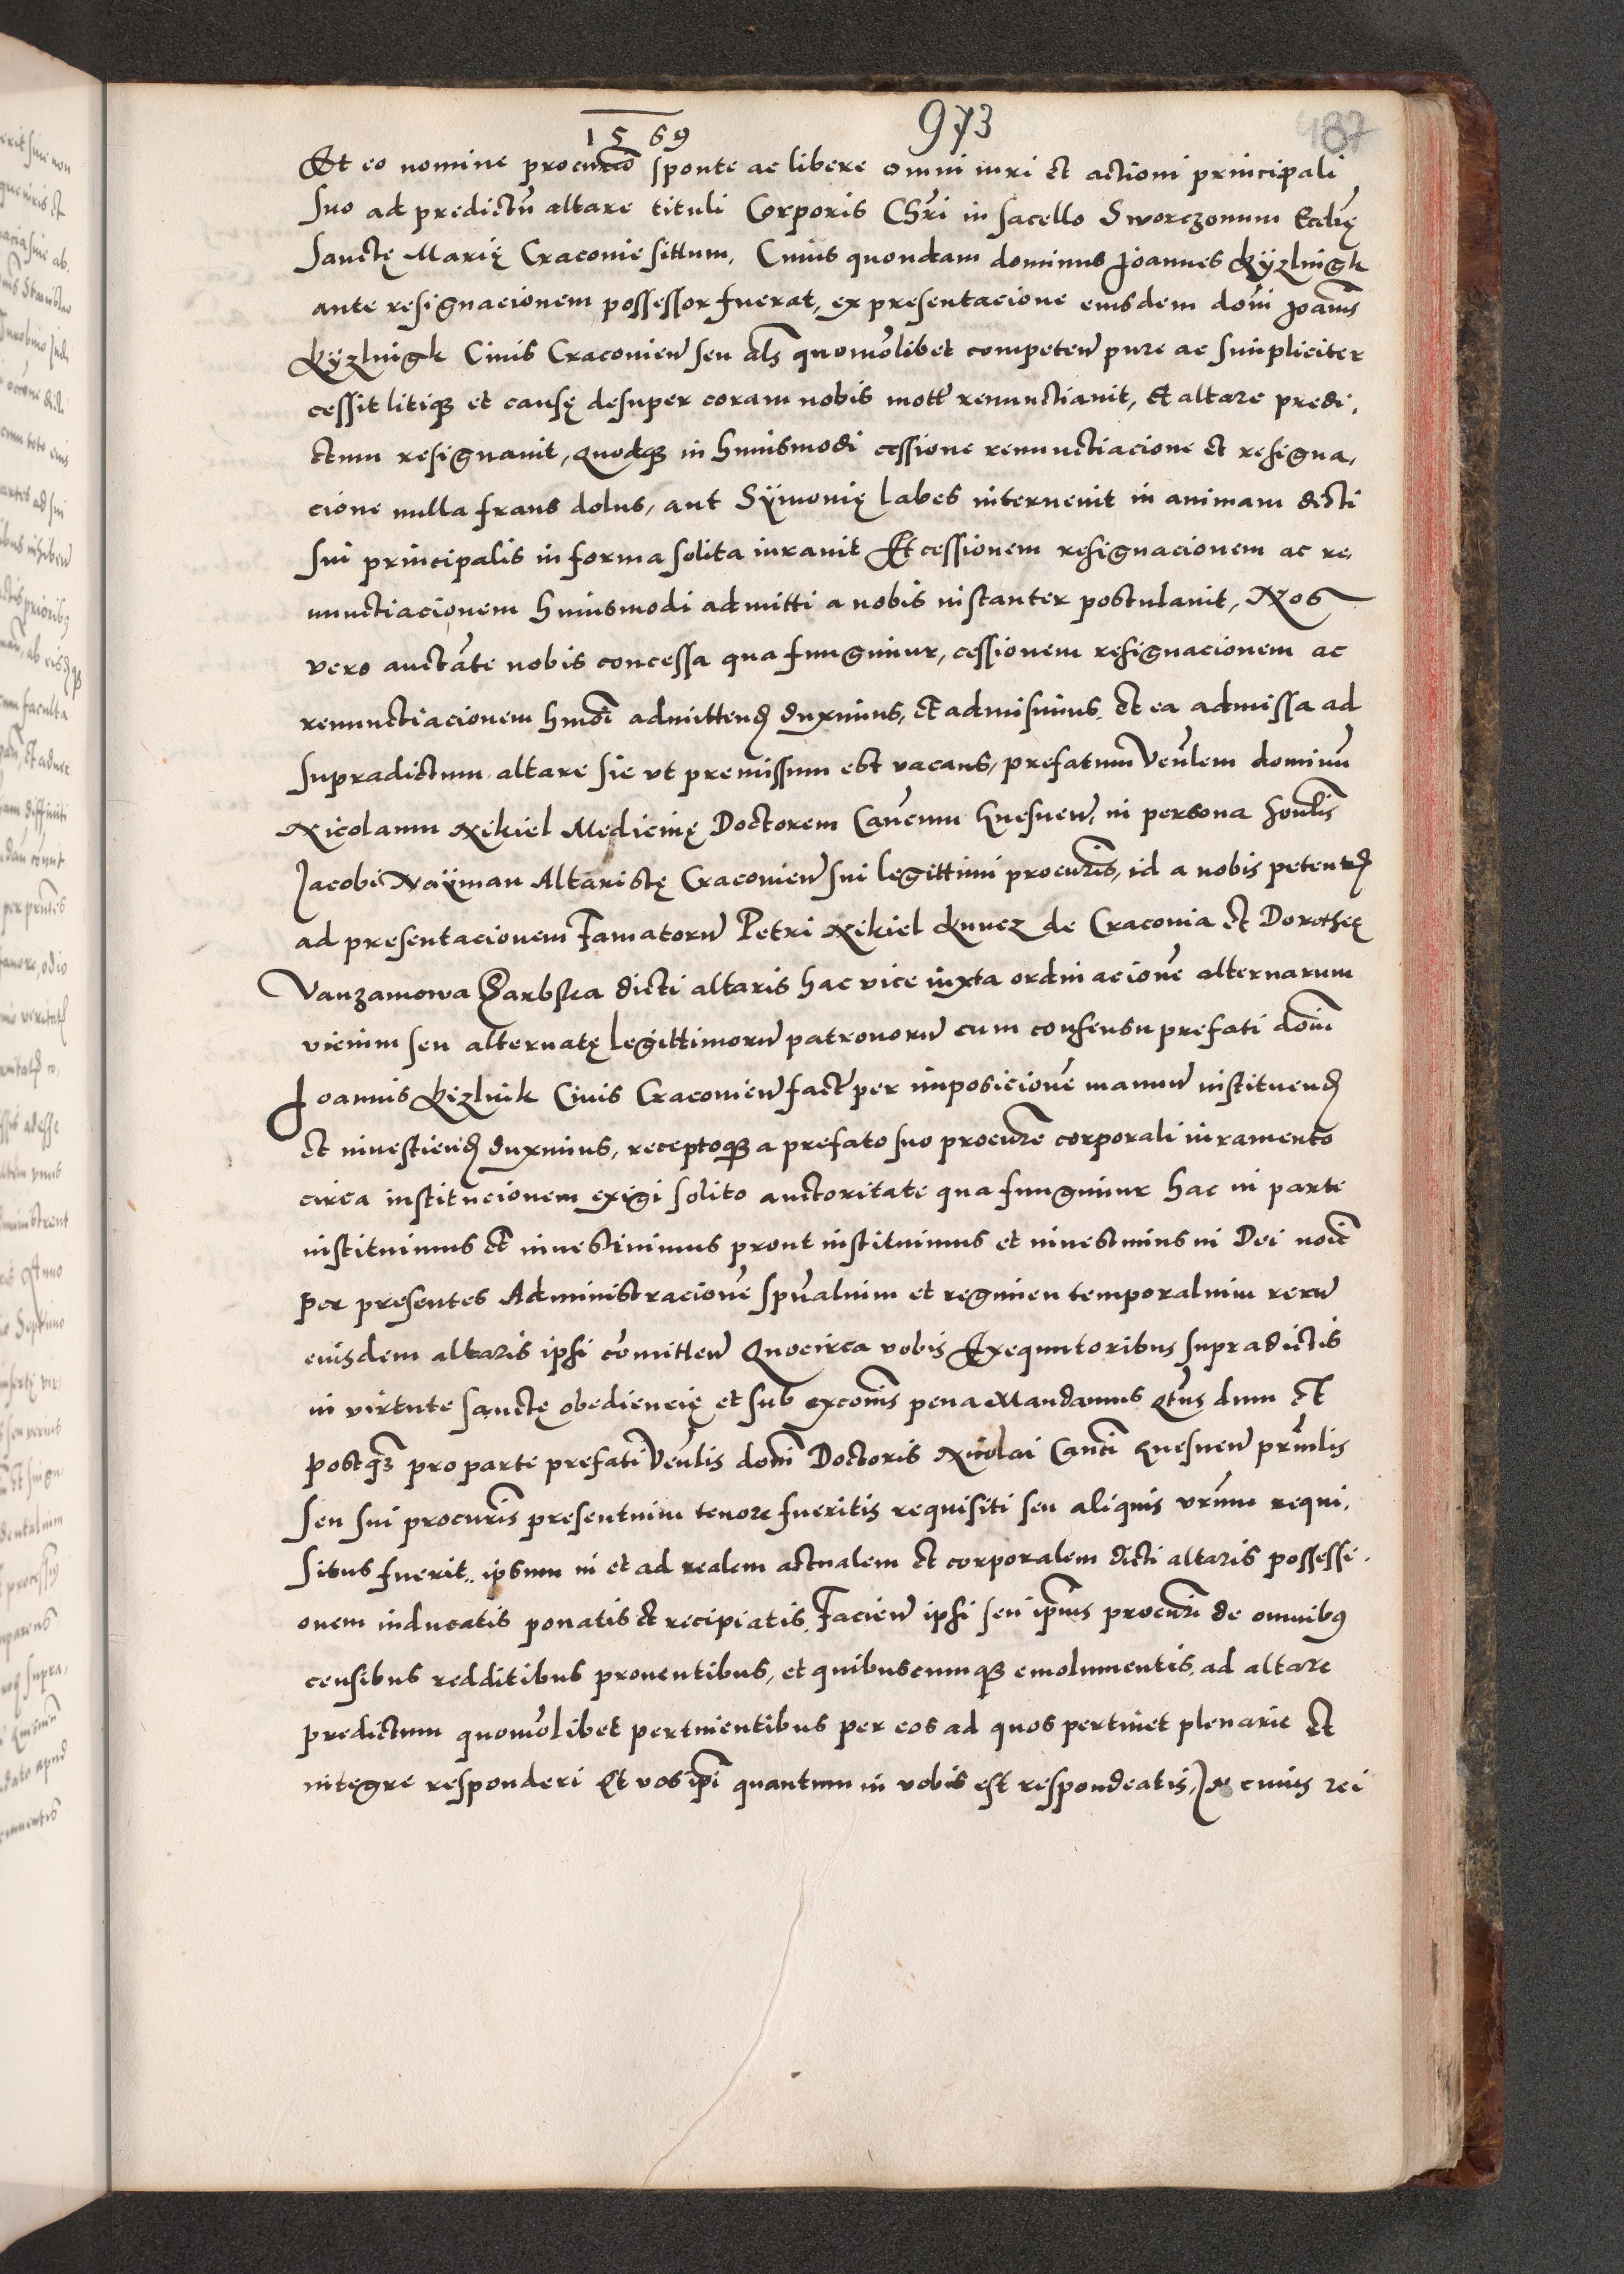 1569
973
487
Et eo nomine procurio sponte ac libere omni iuri et actioni principali
suo ad predictũ altare tituli Corporis Chri in sacello Sworczonum Ecclię
Sanctę Marię Craconie sittum, Cuius quondam dominus Joannes Kÿzlnigk
ante resignacionem possessor fuerat, ex presentacione eiusdem doni Joanis
Kÿzlnigk Ciuis Cracouien seu als quomolibet competen pure ac simpliciter
cessit litiq3 et causę desuper coram nobis mott renunctiauit, Et altare predi,
ctum resignauit, Quodq3 in huiusmodi cessione renunctiacione et resigna,
cione nulla fraus dolus, aut Sÿmonię labes interuenit in animam dicti
sui principalis in forma solita iurauit Et cessionem resignacionem ac re,
nunctiacionem huiusmodi admitti a nobis instanter postulauit, Nos
vero auctãte nobis concessa qua fungimur, cessionem resignacionem ac
renunctiacionem hmoi admittend duximus, et admisimus, et ea admissa ad
supradictum altare sic vt premissum est vacans, prefatum Venlem dominũ
Nicolaum Nikiel Medicinę Doctorem Canconu Gnesnen, in persona honlis
Jacobi Naÿman Altaristę Cracouien sui legittimi procuris, id a nobis petend
ad presentacionem Famatoru Petri Nikiel Kuncz de Cracouia et Dorotheę
Vanzamowa Garbska dicti altaris hac vice iuxta ordinacionẽ alternarum
vicium seu alternatę legittimoru patronoru cum consensu prefati doni
Joannis Kizlnik Ciuis Cracouien fact per imposicionẽ manuu instituend
et inuestiend duximus, receptoq3 a prefato suo procure corporali iuramento
circa institucionem exigi solito auctoritate qua fungimur hac in parte
instituimus et inuestiuimus prout instituimus et inuestimus in Dei noie
per presentes Administracionẽ spualnim et regimen temporalium reru
eiusdem altaris ipsi comitten Quocirca vobis Exequutoribus supradictis
in virtute sanctę obediencię et sub excomis pena Mandamus Qtus dum et
postq3 pro parte prefati Venlis doni Doctoris Nicolai Canci Gnesnen princlis
seu sui procuris presentium tenore fueritis requisiti seu aliquis vrum requi,
situs fuerit, ipsum in et ad realem actualem et corporalem dicti altaris possessi,
onem inducatis ponatis et recipiatis, Facien ipsi seu ipius procuri de omnibus
censibus redditibus prouentibus, et quibuscumq3 emolumentis, ad altare
predictum quomolibet pertinentibus per eos ad quos pertinet plenarie et
integre responderi Et vos ipi quantum in vobis est respondeatis, In cuius rei